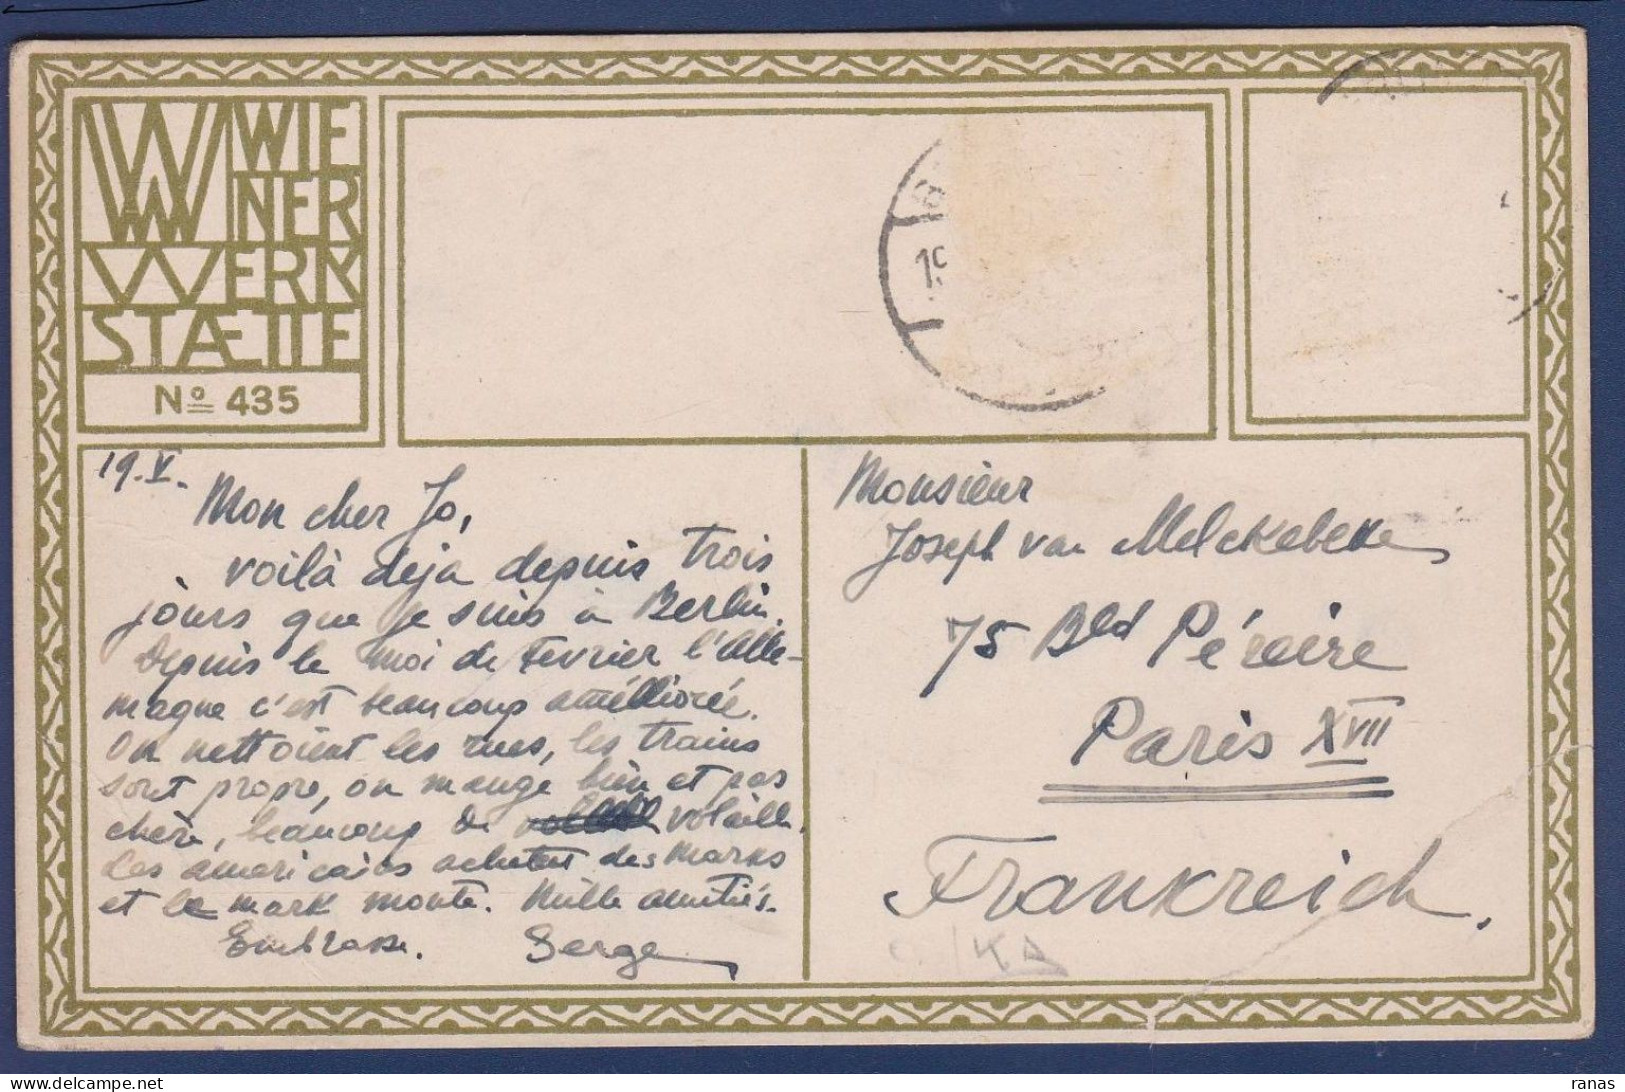 WIE
NER
WERK
STÆTTE
Nº 435
19
19. V.
Mon cher Jo,
voilà deja depuis trois
jours que je suis à Berlin.
Depuis le moi de Fevrier l'Alle-
magne c'est beaucoup améliorée.
On nettoient les rues, les trains
sont propre, on mange bien et pas
chère, beaucoup de volaille.
Les americaies achetent des Marks
et le mark monte. Mille amitiés.
Embrasse. Serge
Monsieur
Joseph van Melckebeke
75 Bld Péreire
Paris XVII
Frankreich.
delcampe.net
ranas